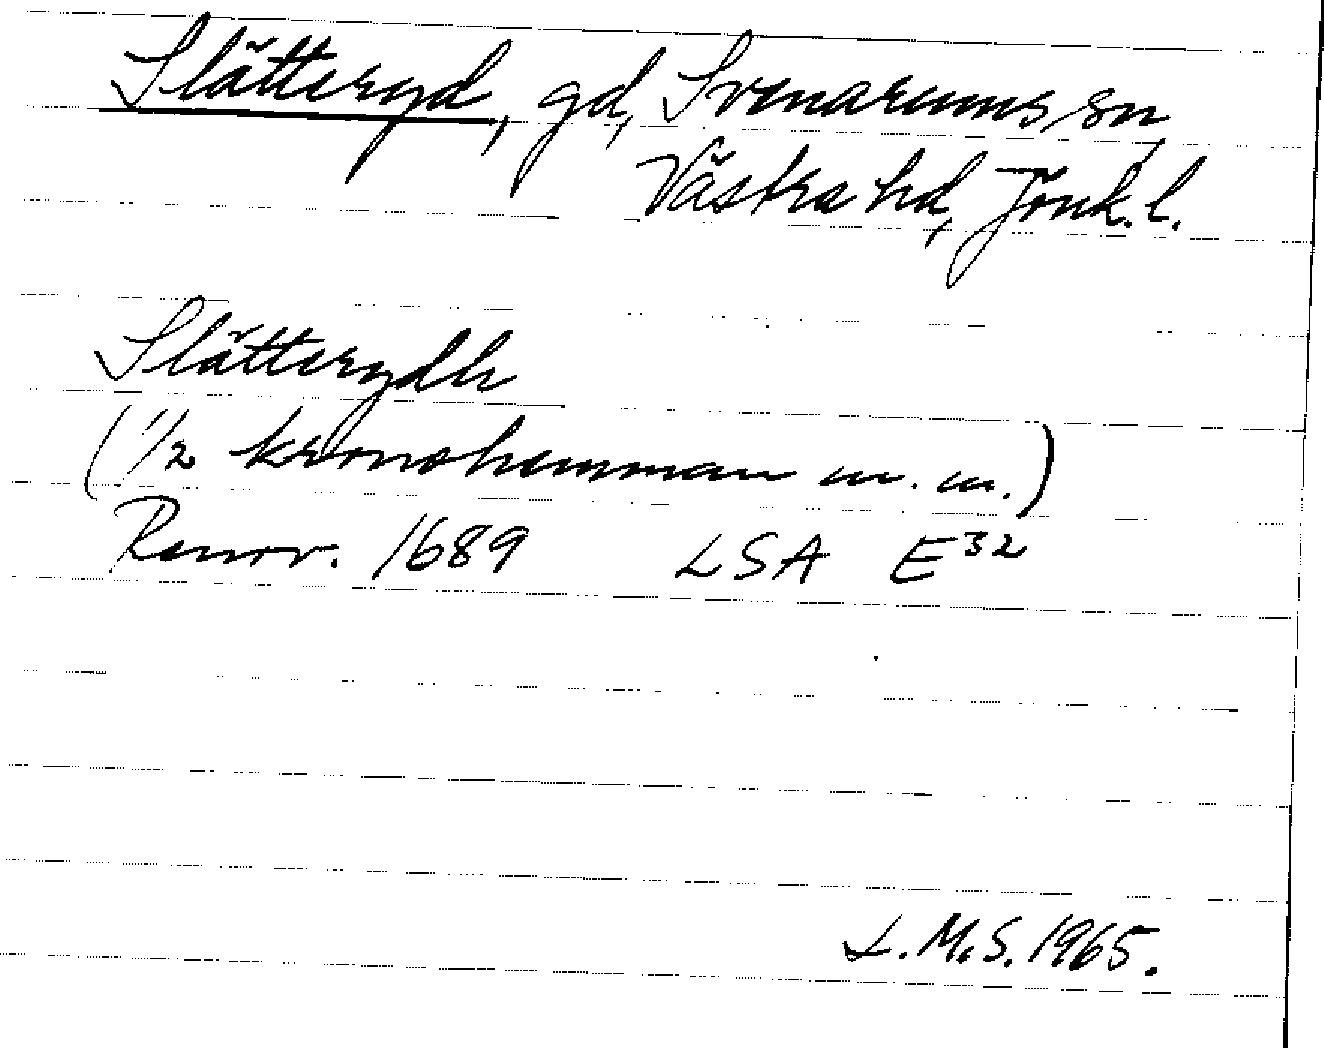 Slätteryd, gd, Svenarums sn,
Västra hd, Jönk. l.
Slätterydh
(1/2 kronohemman m. m.)
Renov. 1689 LSA E32
L.M.S. 1965.